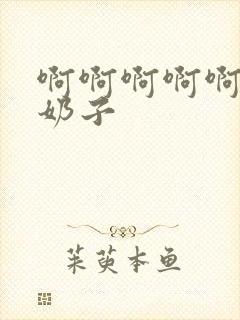 啊啊啊啊啊
奶子
茱萸本鱼